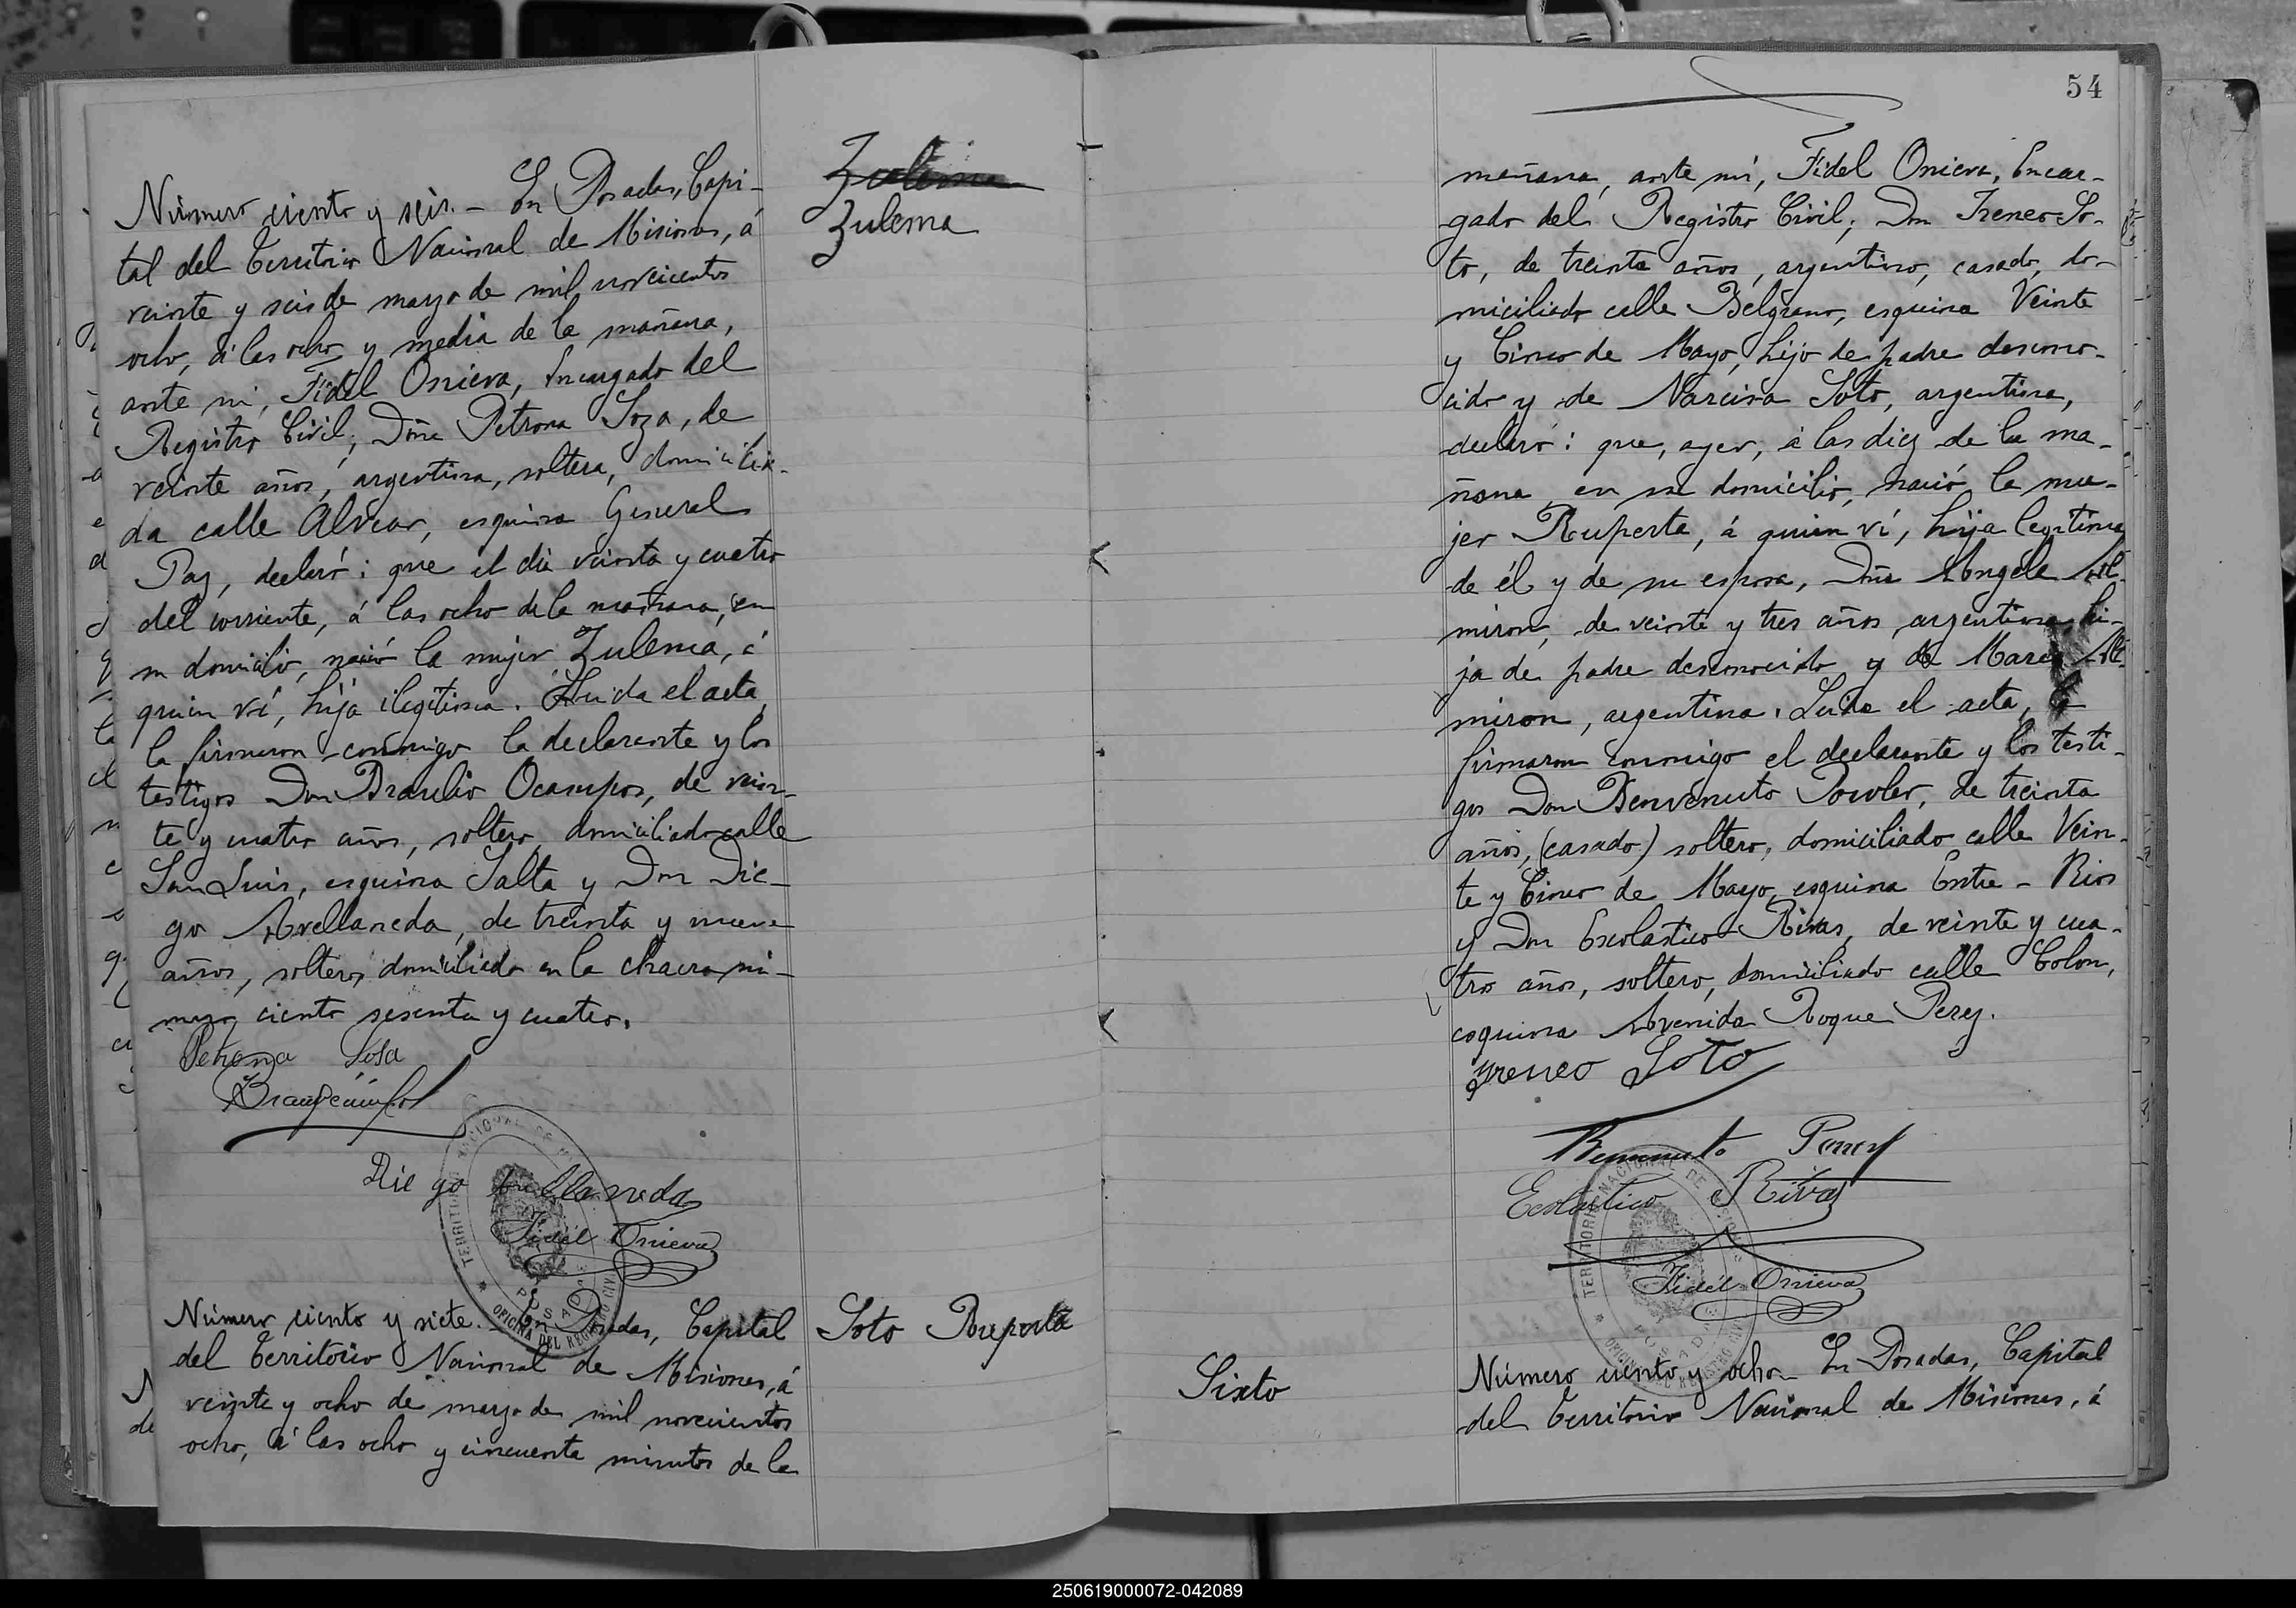 Número ciento y seis.- En Posadas, Capi-
tal del Territorio Nacional de Misiones, á
veinte y seis de marzo de mil novecientos
ocho, á las ocho y media de la mañana,
ante mi, Fidel Onieva, Encargado del
Registro Civil; Doña Petrona Soza, de
veinte años, argentina, soltera, domicilia-
da calle Alvear, esquina General
Paz, declaró: que el dia veinte y cuatro
del corriente, á las ocho de la mañana, en
su domicilio, nació la mujer Zulema, á
quien ví, hija ilegitima. Leida el acta,
la firmaron conmigo la declarante y los
testigos Don Braulio Ocampos, de vein-
te y cuatro años, soltero, domiciliado calle
San Luis, esquina Salta y Don Die-
go Avellaneda, de treinta y nueve
años, soltero, domiciliado en la chacra nú-
mero ciento sesenta y cuatro.
Petrona Sosa
Diego Avellaneda
Fidel Onieva
TERRITORIO NACIONAL DE
POSADAS
OFICINA DEL REGISTRO CIVIL
Número ciento y siete.- En Posadas, Capital
del Territorio Nacional de Misiones, á
veinte y ocho de marzo de mil novecientos
ocho, á las ocho y cincuenta minutos de la
Zulema
Zulema
Soto Ruperta
54
mañana, ante mí, Fidel Onieva, Encar-
gado del Registro Civil; Don Ireneo So-
to, de treinta años, argentino, casado, do-
miciliado calle Belgrano, esquina Veinte
y Cinco de Mayo, hijo de padre descono-
cido y de Narcisa Soto, argentina,
declaró: que, ayer, á las diez de la ma-
ñana, en su domicilio, nació la mu-
jer Ruperta, á quien ví, hija legitima
de él y de su esposa, Doña Angela Al-
miron, de veinte y tres años, argentina, hi-
ja de padre desconocido y de Al-
miron, argentina. Leida el acta, la
firmaron conmigo el declarante y los testi-
gos Don Benvenuto de treinta
años, (casado) soltero, domiciliado calle Vein-
te y Cinco de Mayo, esquina Entre-Rios
y Don Escolastico Rivas, de veinte y cua-
tro años, soltero, domiciliado calle Colon,
esquina Avenida Roque Perez.
Yreneo Soto
Escolastico Rivas
Fidel Onieva
TERRITORIO NACIONAL DE MISIONES
POSADAS
OFICINA DEL REGISTRO CIVIL
Sixto
Número ciento y ocho.- En Posadas, Capital
del Territorio Nacional de Misiones, á
250619000072-042089